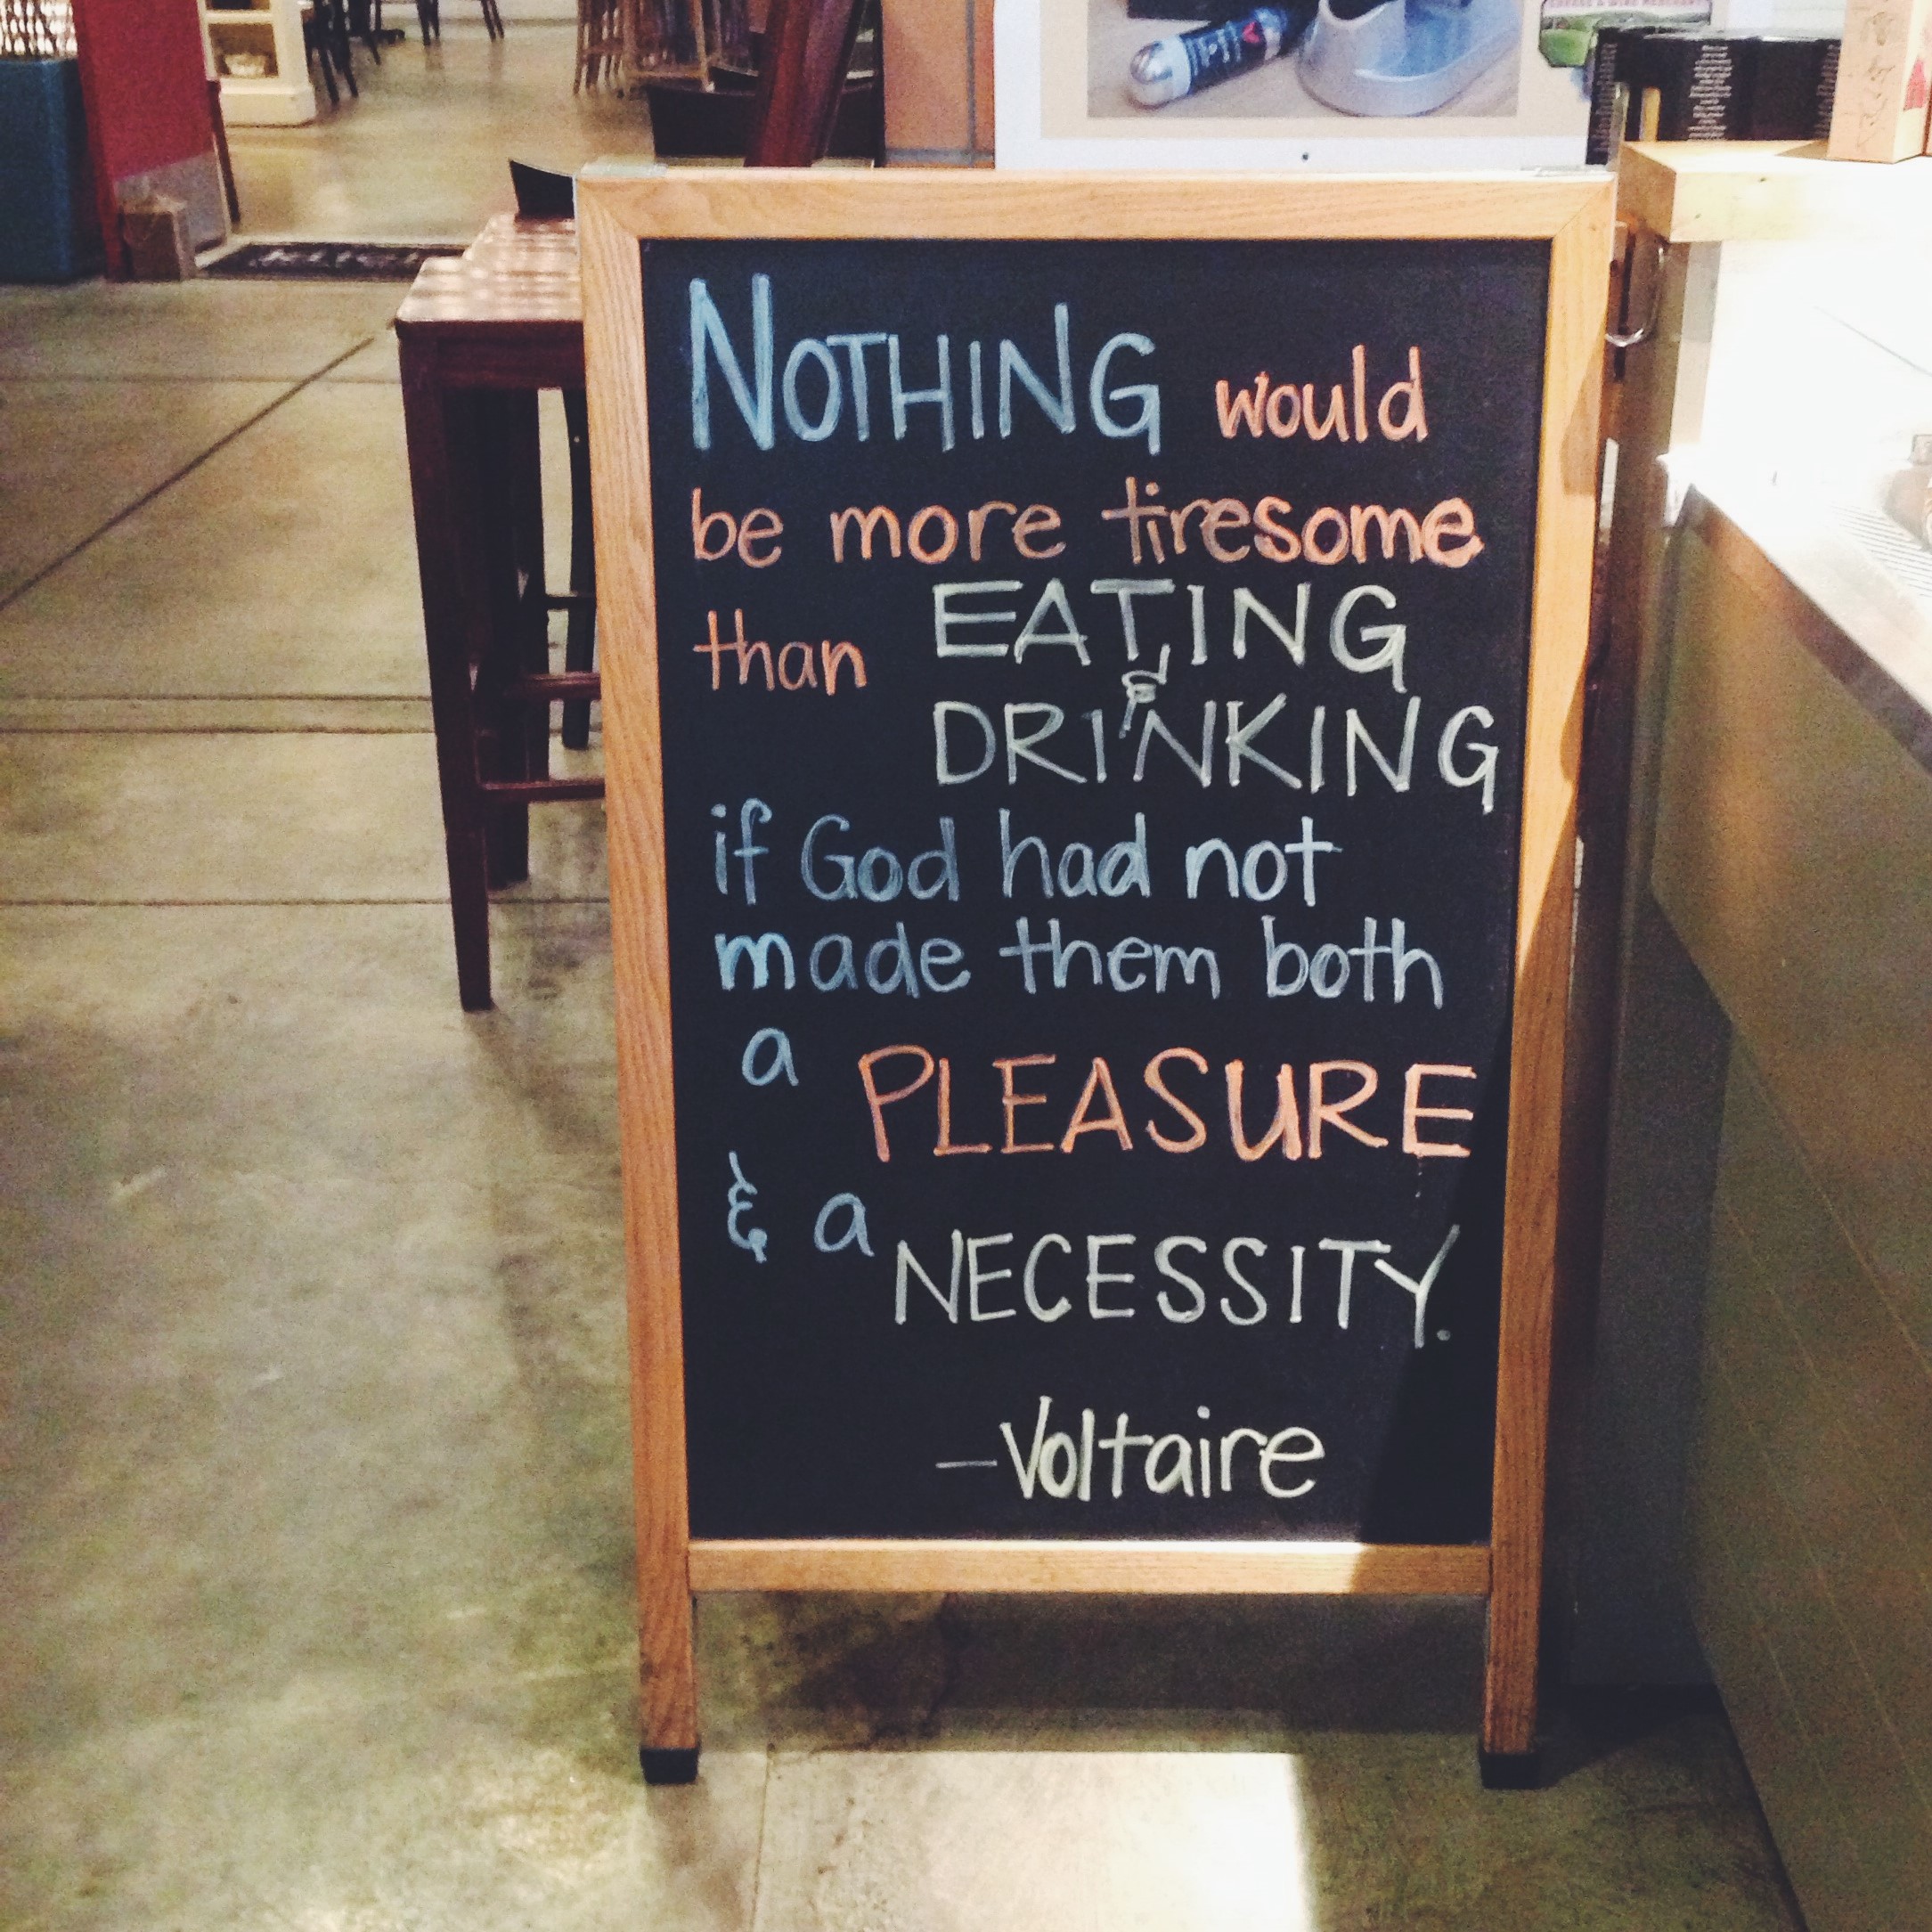 NOTHING would
be more tiresome
than EATING
&
DRINKING
if God had not
made them both
a PLEASURE
& a NECESSITY.
—Voltaire